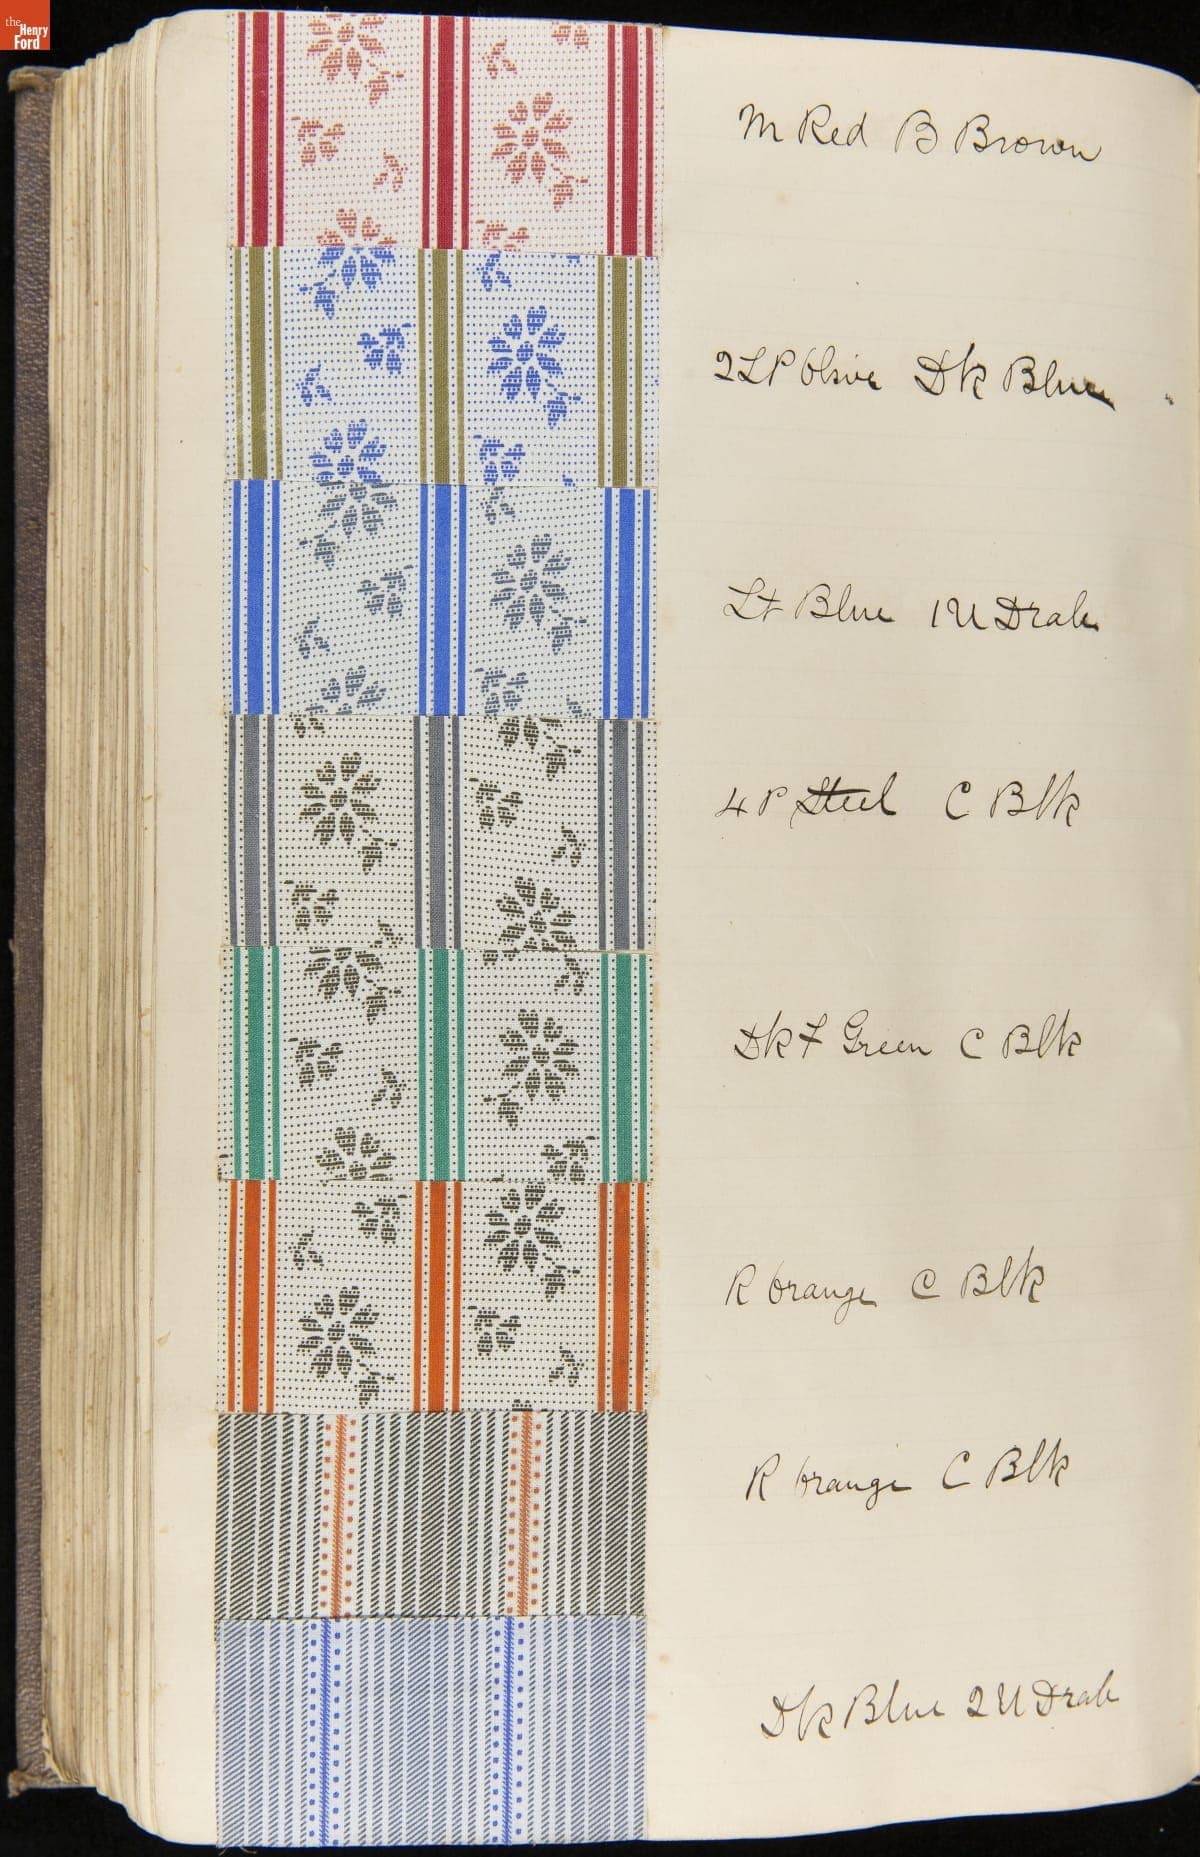 the
Henry
Ford
M Red B Brown
2 LP Olive Dk Blue
Lt Blue 1 U Drab
4 P Steel C Blk
Dk F Green C Blk
R Orange C Blk
R Orange C Blk
Dk Blue 2 U Drab